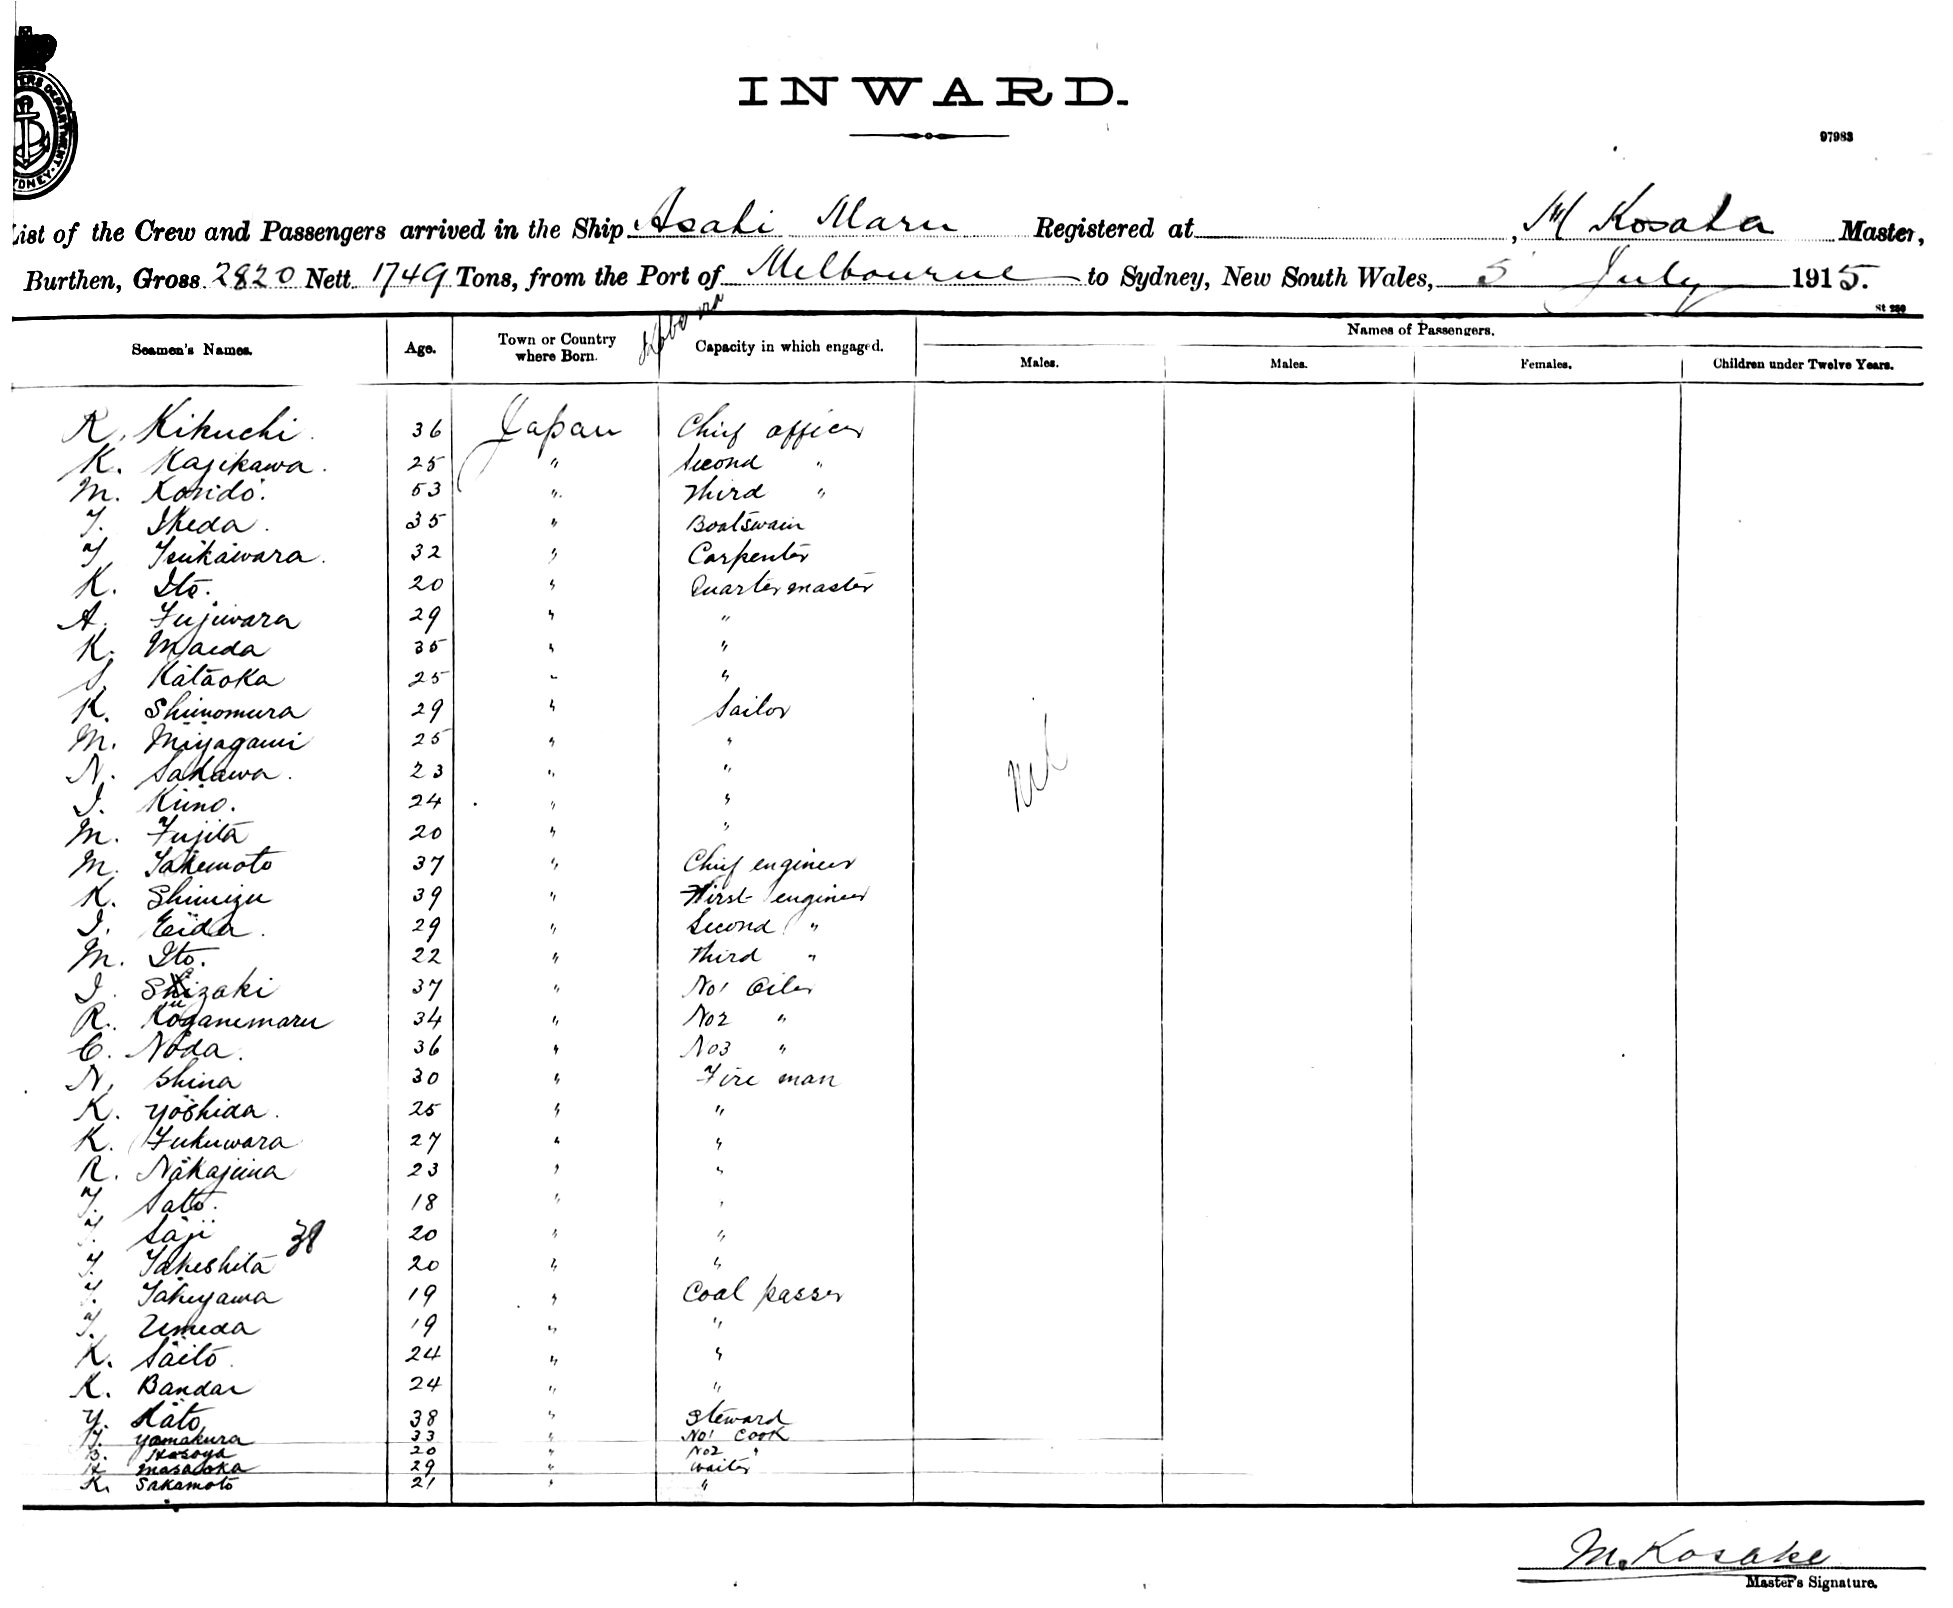 INWARD.
97983
List of the Crew and Passengers arrived in the Ship Asahi Maru Registered at , M Kosaka Master,
Burthen, Gross 2820 Nett 1749 Tons, from the Port of Melbourne to Sydney, New South Wales, 5 July 1915.
St 250
Seamen's Names. Age. Town or Country where Born. Capacity in which engaged. Names of Passengers.
Males. Males. Females. Children under Twelve Years.
R. Kikuchi. 36 Japan Chief officer
K. Kajikawa. 25 " Second "
M. Kondo. 53 " Third "
T. Ikeda. 35 " Boatswain
T. Tsukawara. 32 " Carpenter
K. Ito. 20 " Quartermaster
A. Fujiwara 29 " "
K. Maeda 35 " "
S. Kataoka 25 " "
K. Shimomura 29 " Sailor
M. Miyagami 25 " "
N. Sakawa. 23 " "
I. Kiino. 24 " "
M. Fujita 20 " "
Nil
M. Takemoto 37 " Chief engineer
K. Shimizu 39 " First engineer
I. Eida. 29 " Second "
M. Ito. 22 " Third "
I. 37 " No1 Oiler
R. Koganemaru 34 " No2 "
C. Noda. 36 " No3 "
N. Shina 30 " Fire man
K. Yoshida. 25 " "
K. Fukuwara 27 " "
R. Nakajima 23 " "
T. Sato. 18 " "
T. Saji 20 " "
T. Takeshita 20 " "
T. Takeyama 19 " Coal passer
T. Umeda 19 " "
K. Saito. 24 " "
K. Bandai 24 " "
Y. Kato 38 " Steward
T. Yamakura 33 " No1 Cook
B. Hosoya 20 " No2 "
K. Masaoka 29 " Waiter
K. Sakamoto 21 " "
M. Kosaka
Master's Signature.